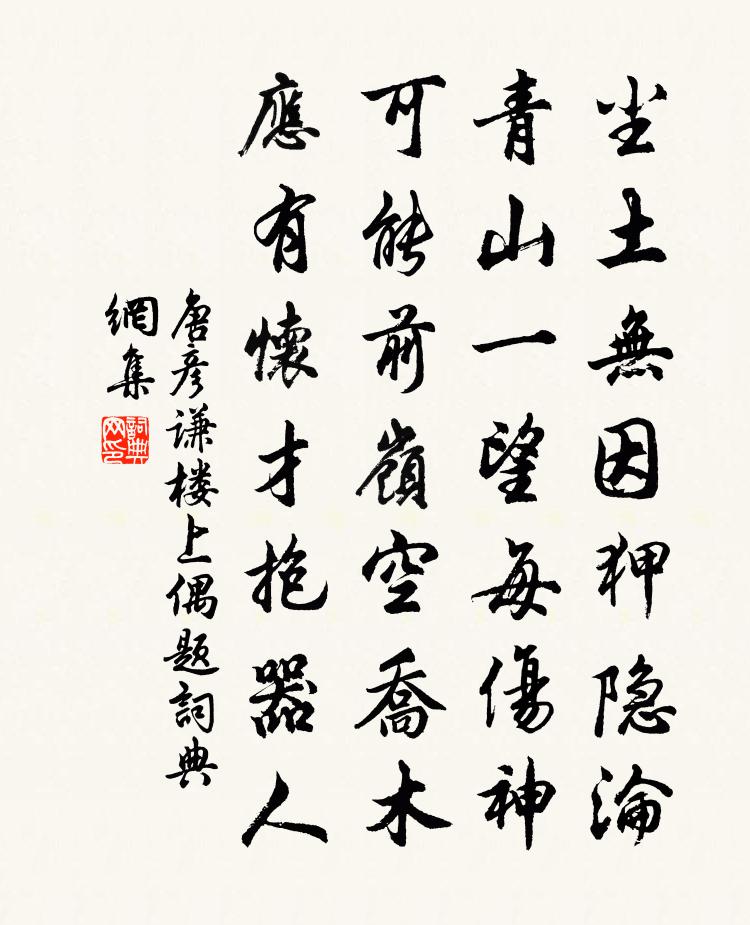 尘土無因狎隐淪
青山一望每傷神
可能前嶺空喬木
應有懷才抱器人
唐彦谦楼上偶题詞典
網集
詞典網印